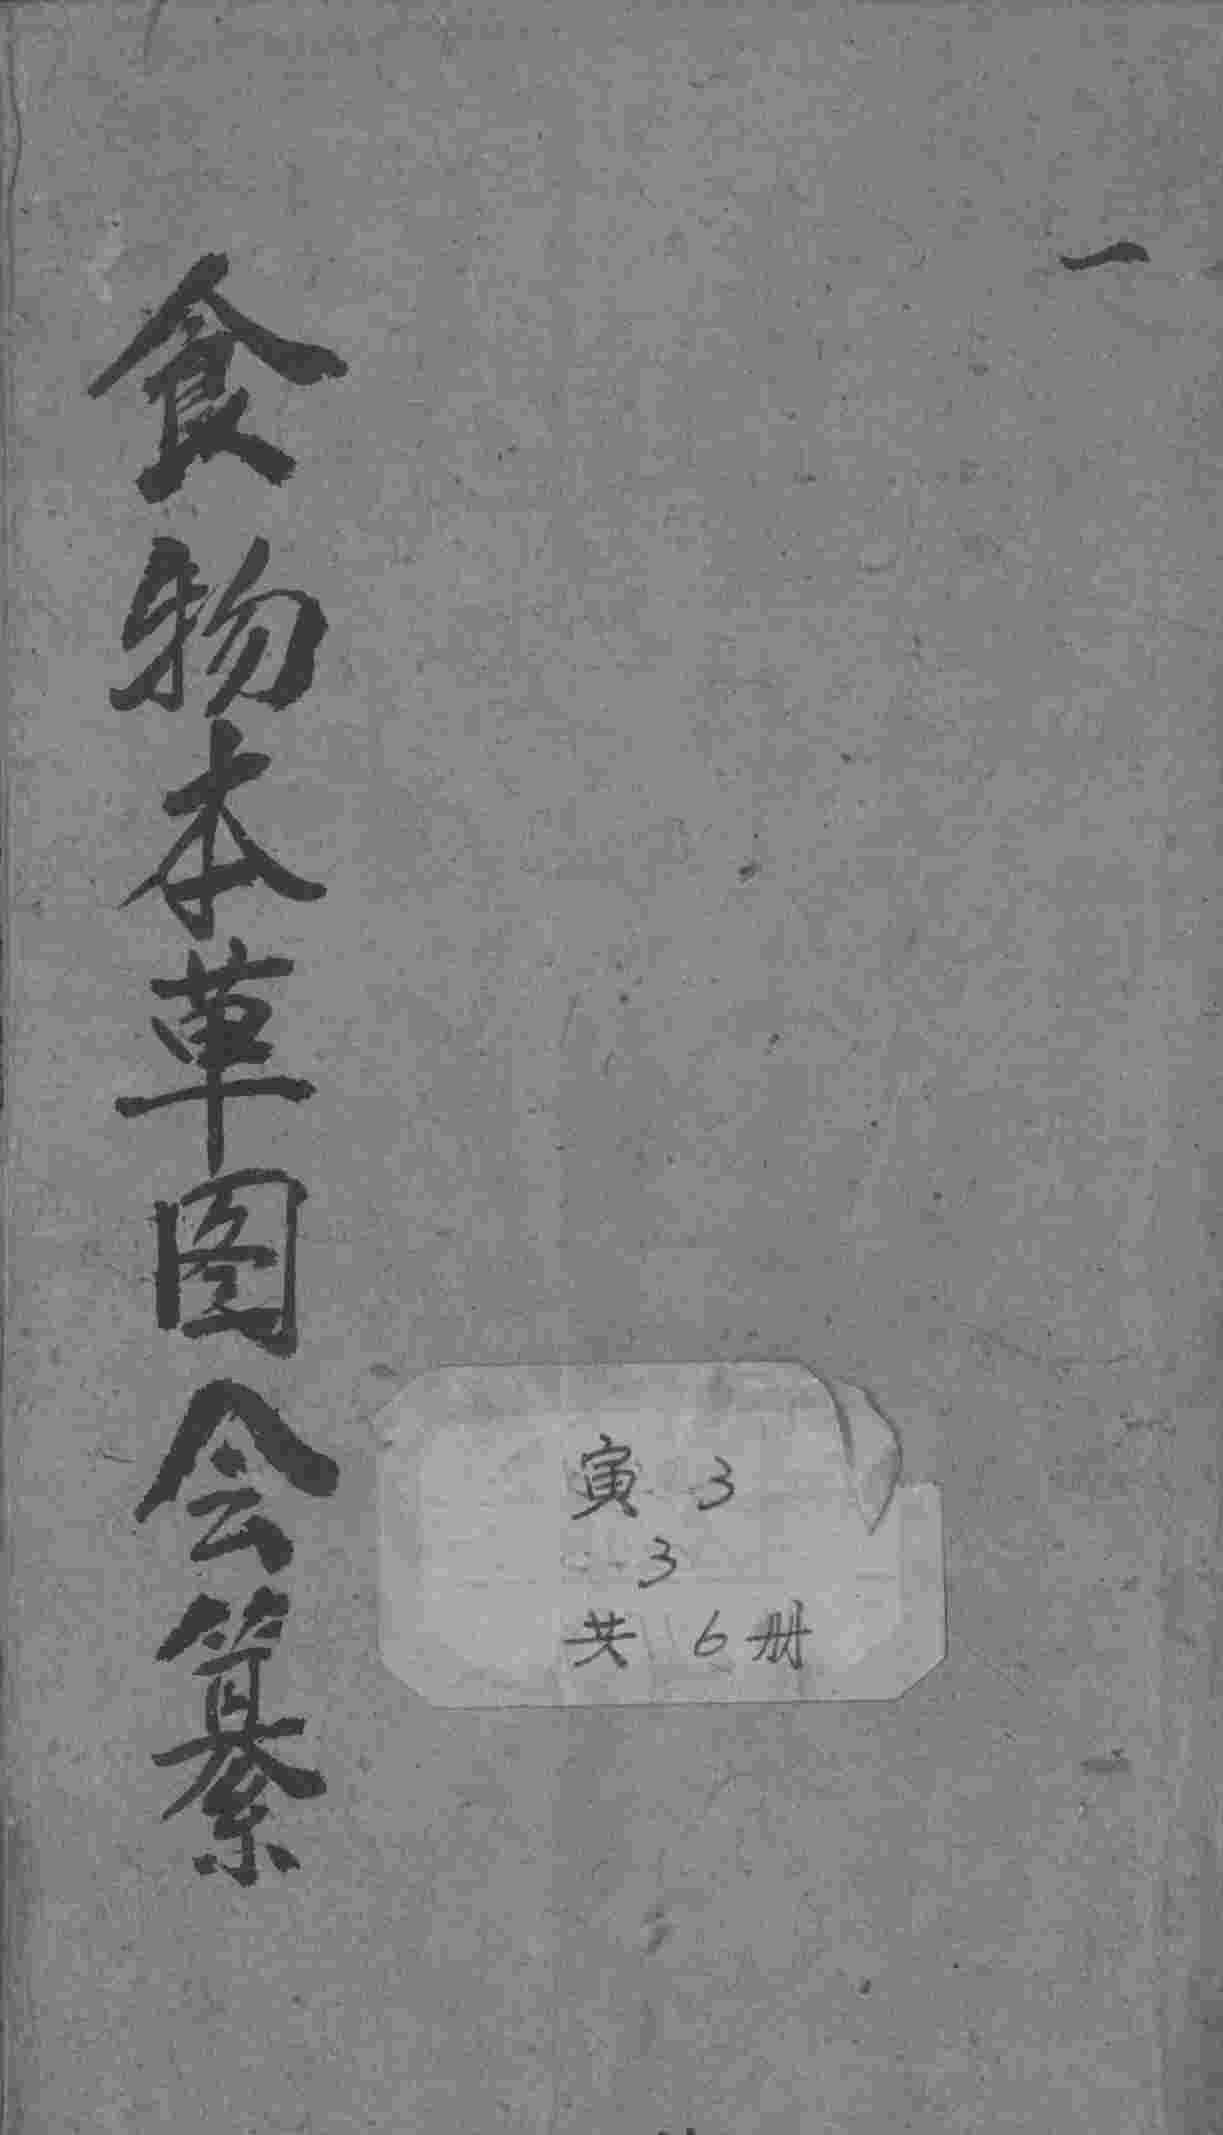 一
食物本草图会纂
寅 3
3
共 6 册